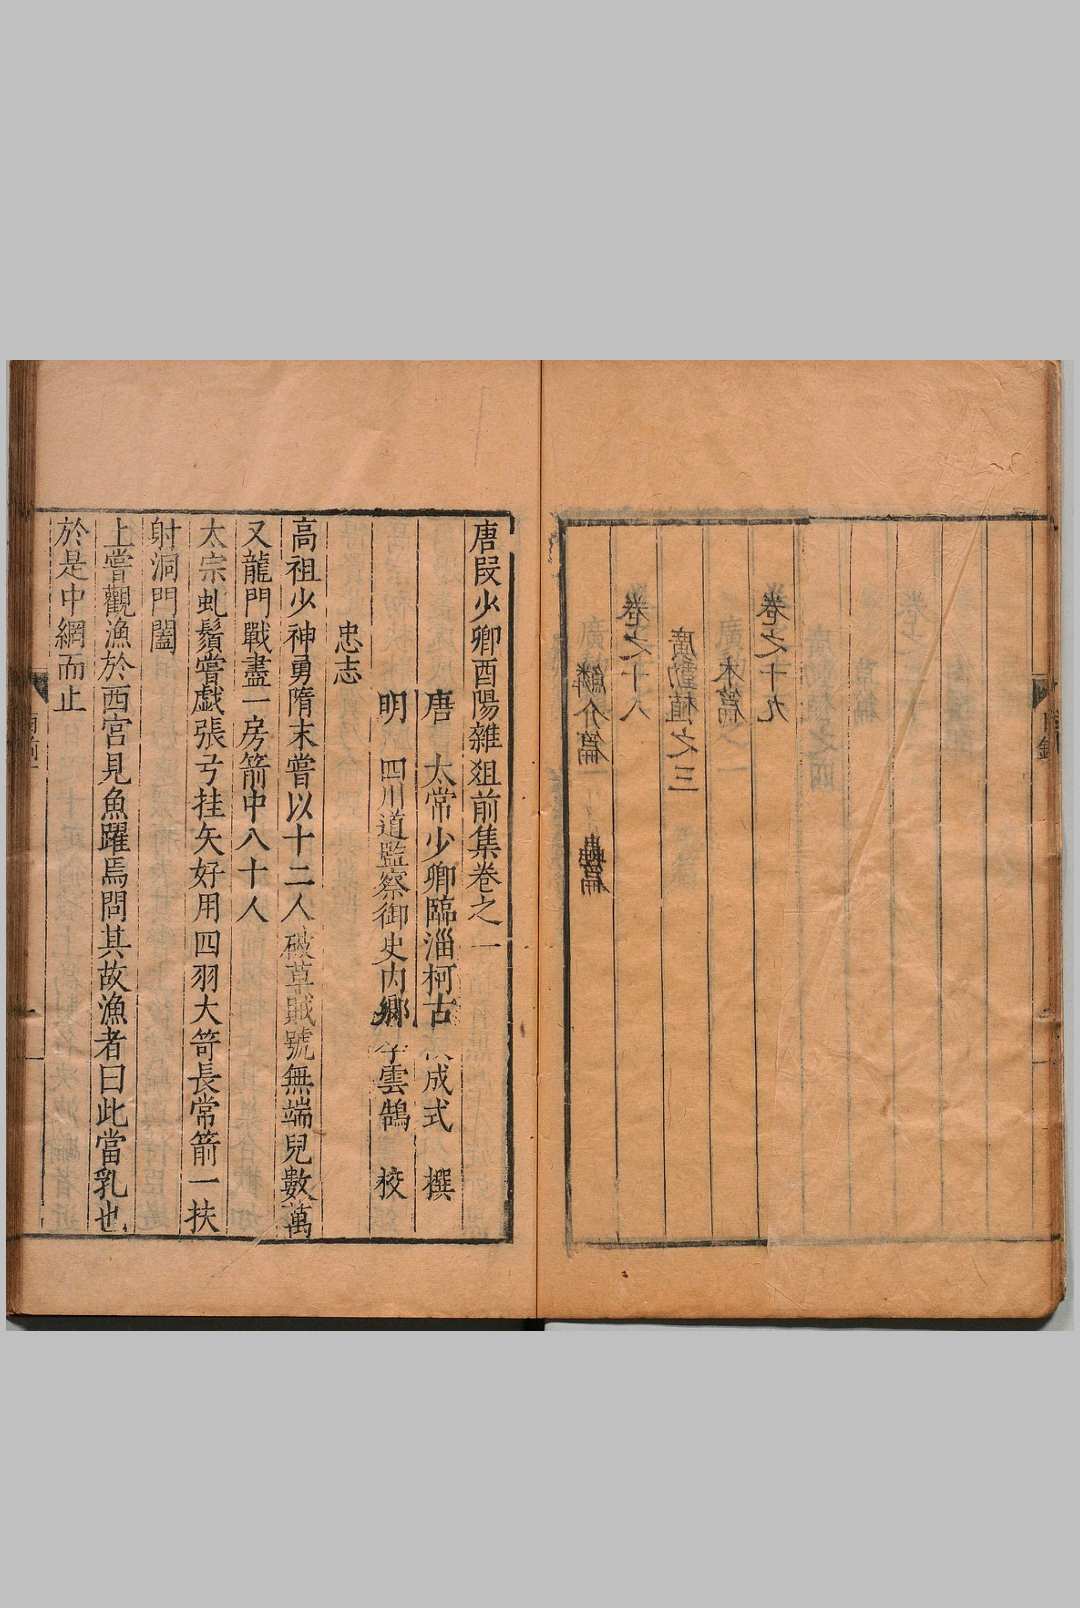 鱗介篇 蟲篇
卷之十八
廣動植之三
木篇
卷之十九
目錄
唐段少卿酉陽雜俎前集卷之一
唐 太常少卿臨淄柯古 成式 撰
明 四川道監察御史内鄉李雲鵠 校
忠志
高祖少神勇隋末嘗以十二人破草賊號無端兒數萬
又龍門戰盡一房箭中八十人
太宗虬鬚嘗戲張弓挂矢好用四羽大笴長常箭一扶
射洞門闔
上嘗觀漁於西宮見魚躍焉問其故漁者曰此當乳也
於是中網而止